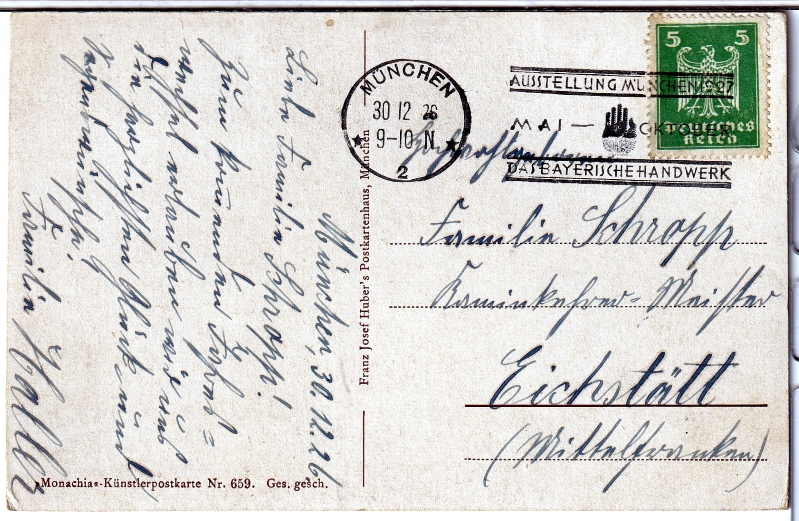 München, 30.12.26
Liebe Familie Schropp!
Zum kommenden Jahres=
wechsel erlauben wir uns
die herzlichsten Glück und
Segenswünsche!
Familie Haller
»Monachia«-Künstlerpostkarte Nr. 659. Ges. gesch.
Franz Josef Huber's Postkartenhaus, München
MÜNCHEN
30 12 26
9-10 N.
2
AUSSTELLUNG MÜNCHEN 1927
MAI — OKTOBER
DAS BAYERISCHE HANDWERK
5 5
Deutsches
Reich
Familie Schropp
Kaminkehrer-Meister
Eichstätt
(Mittelfranken)